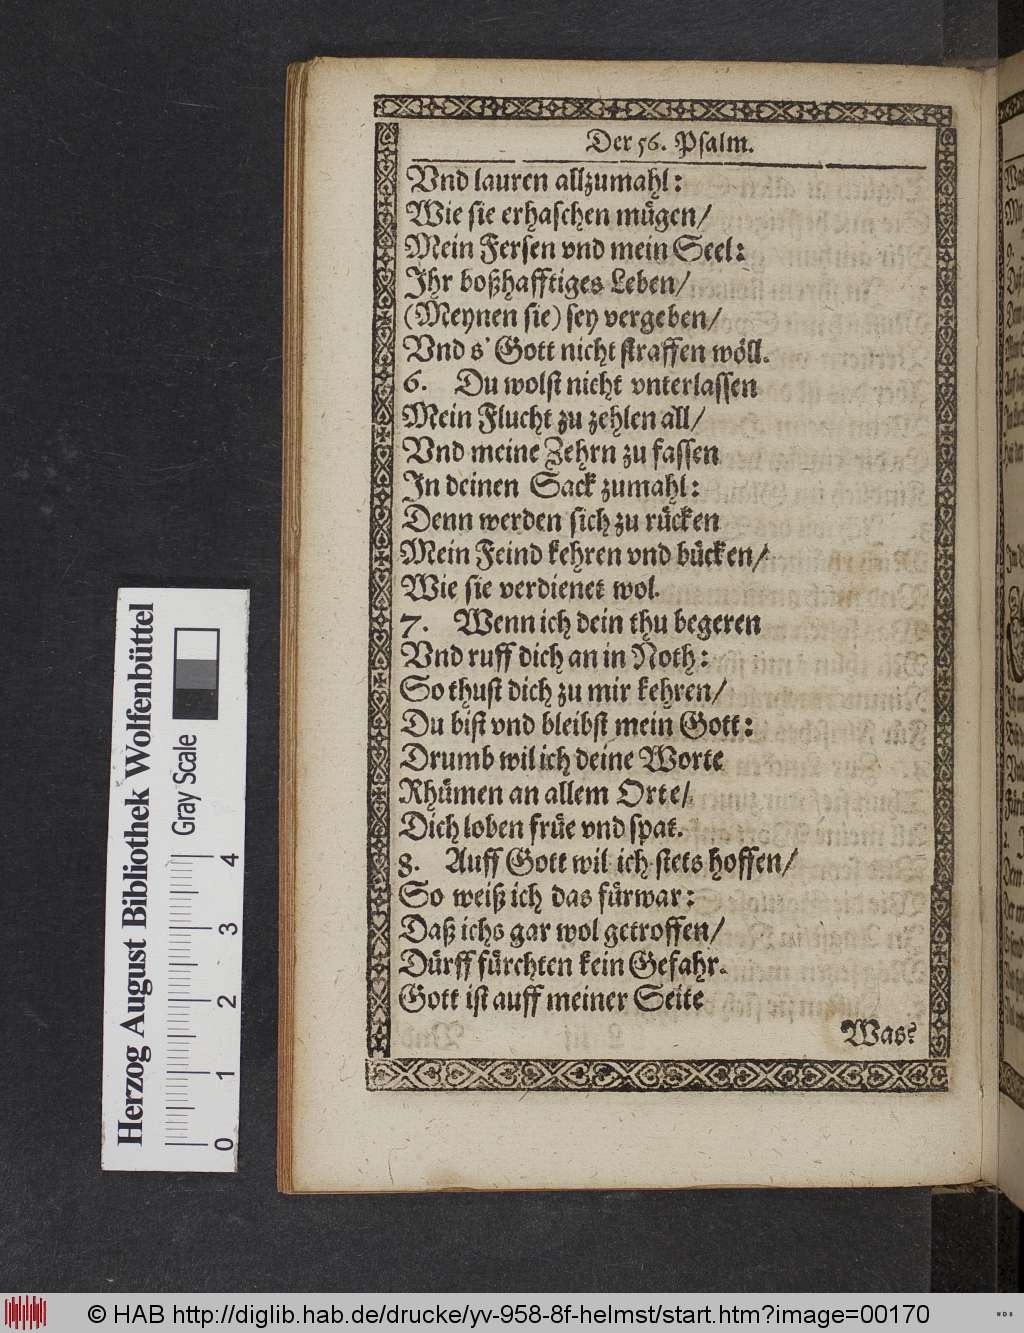 Der 56. Psalm.
Vnd lauren allzumahl:
Wie sie erhaschen mügen/
Mein Fersen vnd mein Seel:
Ihr boßhafftiges Leben/
(Meynen sie) sey vergeben/
Vnd s' Gott nicht straffen wöll.
6. Du wolst nicht vnterlassen
Mein Flucht zu zehlen all/
Vnd meine Zehrn zu fassen
In deinen Sack zumahl:
Denn werden sich zu rücken
Mein Feind kehren vnd bücken/
Wie sie verdienet wol.
7. Wenn ich dein thu begeren
Vnd ruff dich an in Noth:
So thust dich zu mir kehren/
Du bist vnd bleibst mein Gott:
Drumb wil ich deine Worte
Rhümen an allem Orte/
Dich loben früe vnd spat.
8. Auff Gott wil ich stets hoffen/
So weiß ich das fürwar:
Daß ichs gar wol getroffen/
Dürff fürchten kein Gefahr.
Gott ist auff meiner Seite
Was?
Herzog August Bibliothek Wolfenbüttel
Gray Scale
0 1 2 3 4
© HAB http://diglib.hab.de/drucke/yv-958-8f-helmst/start.htm?image=00170